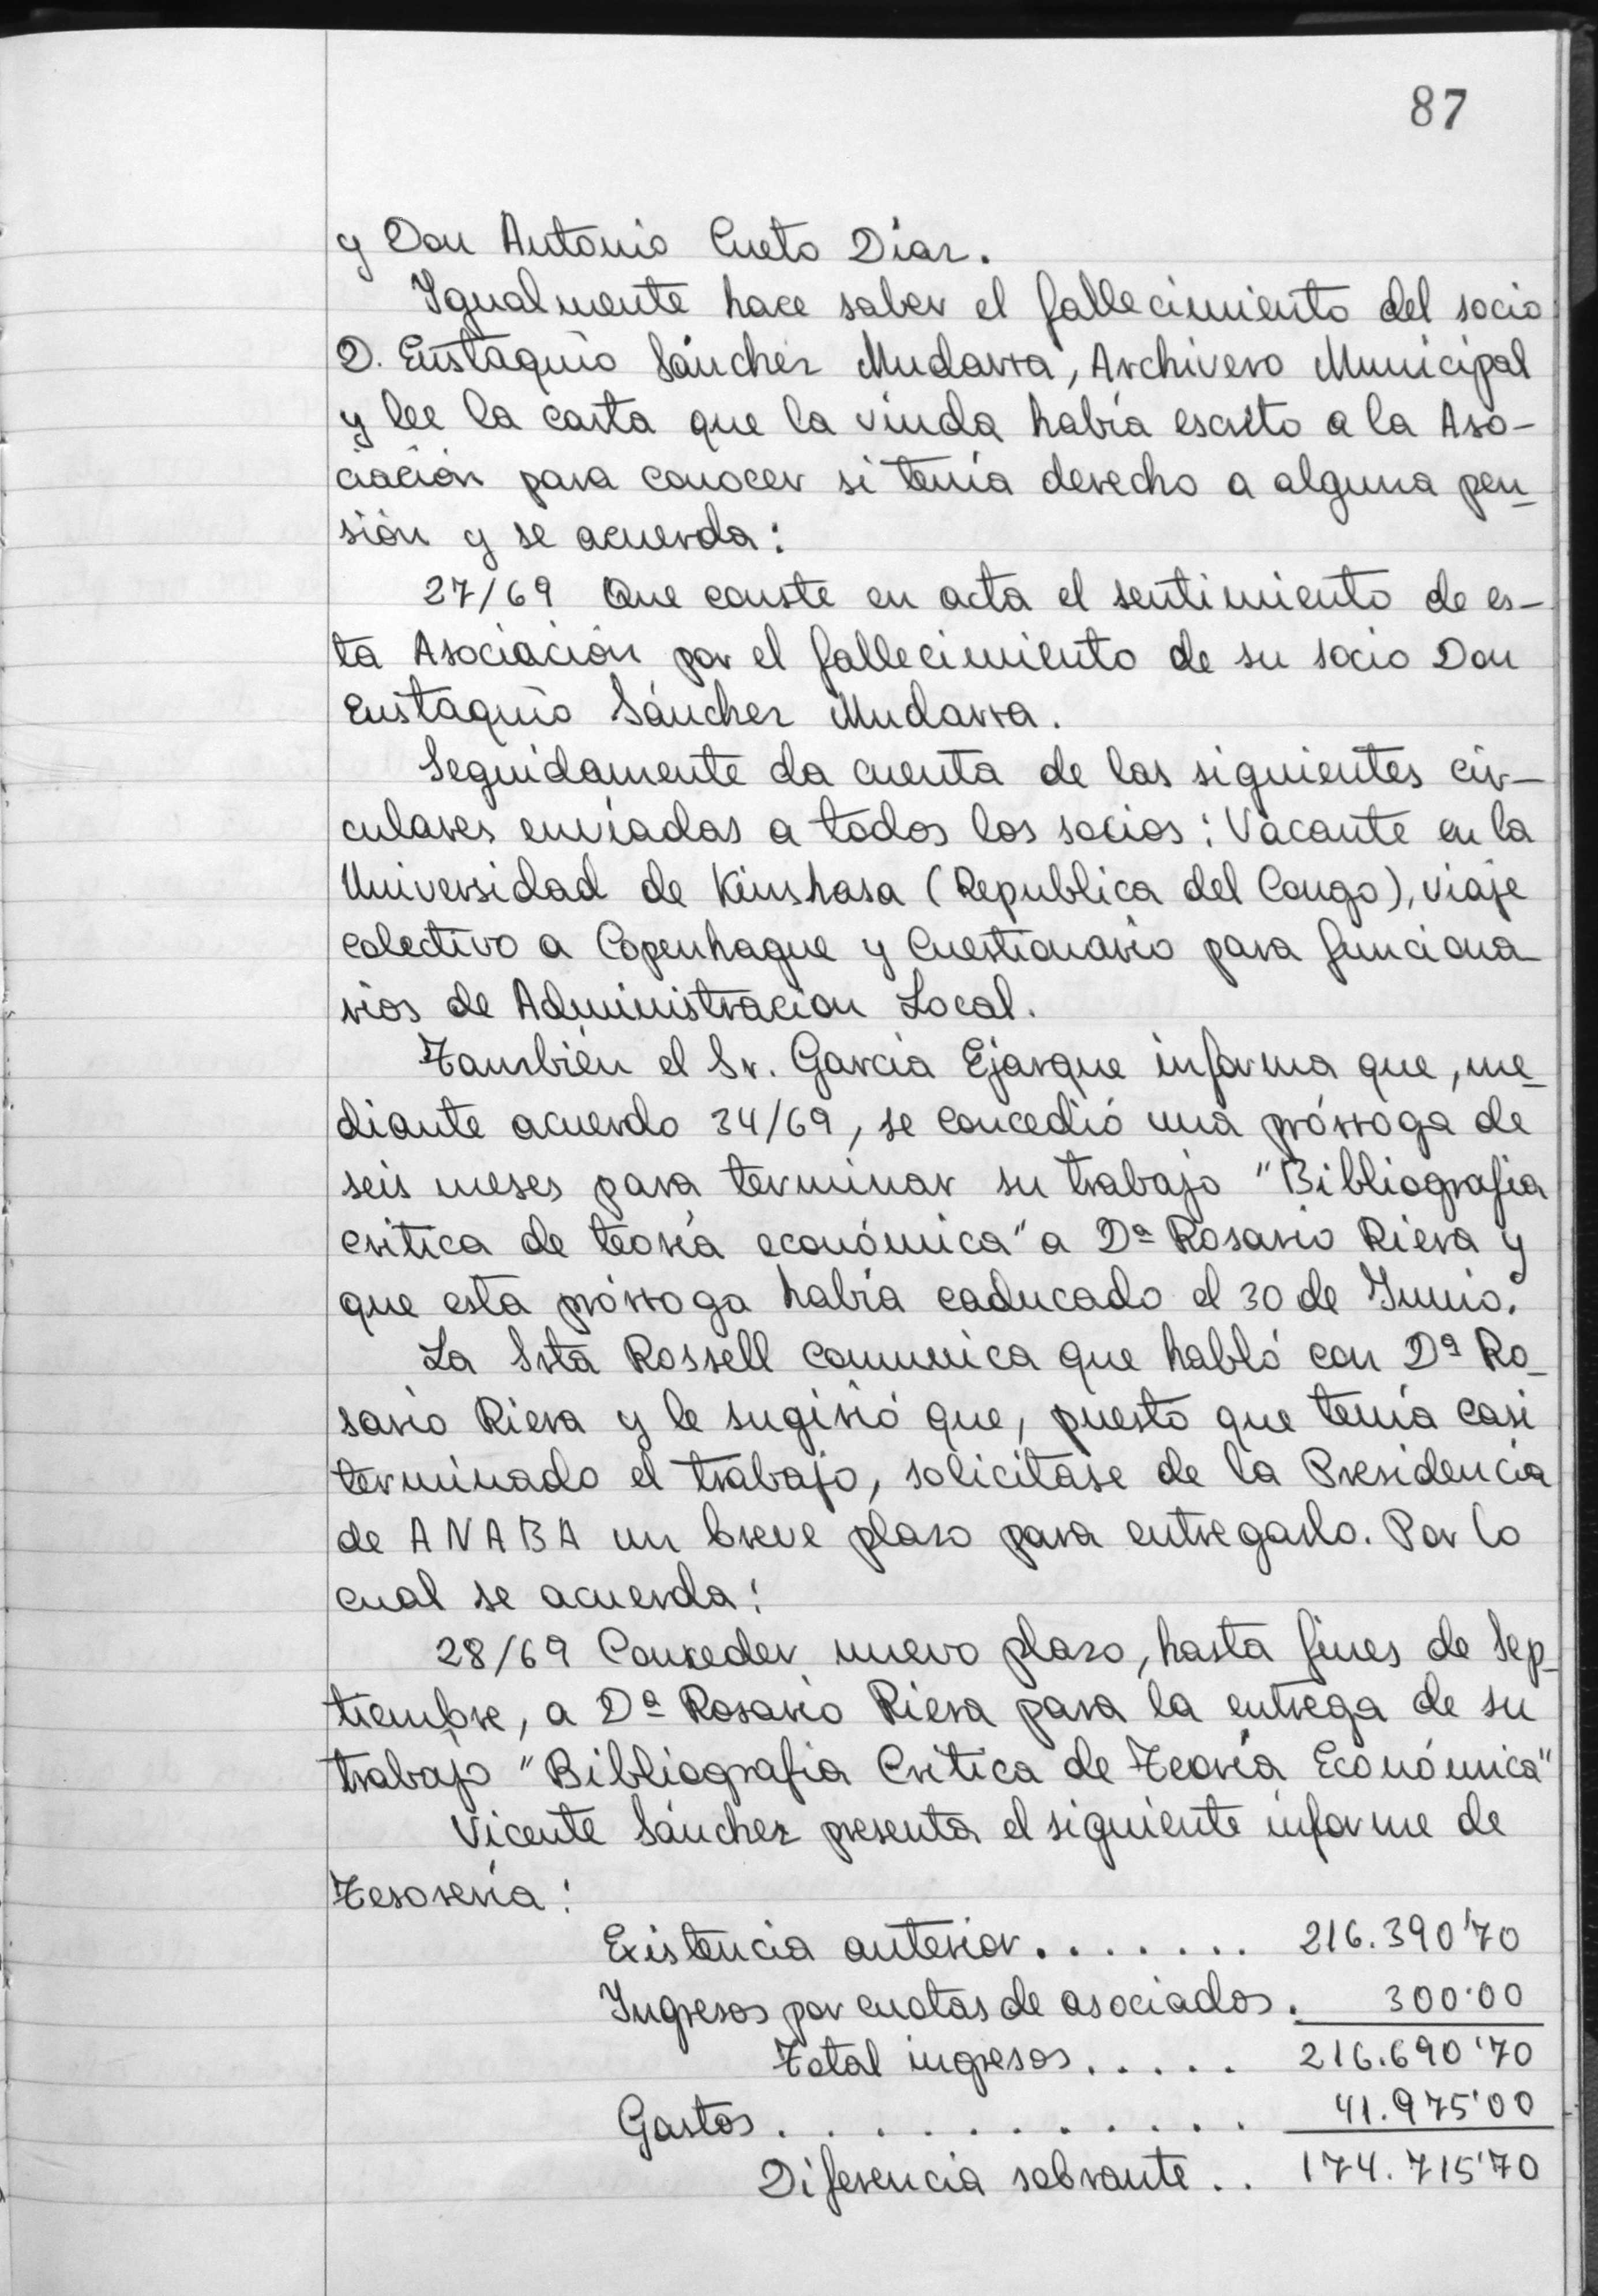 87
y Don Antonio Cueto Díaz.
Igualmente hace saber el fallecimiento del socio
D. Eustaquio Sánchez Mudarra, Archivero Municipal
y lee la carta que la viuda había escrito a la Aso-
ciación para conocer si tenía derecho a alguna pen-
sión y se acuerda:
27/69 Que conste en acta el sentimiento de es-
ta Asociación por el fallecimiento de su socio Don
Eustaquio Sánchez Mudarra.
Seguidamente da cuenta de las siguientes cir-
culares enviadas a todos los socios: Vacante en la
Universidad de Kinshasa (Republica del Congo), viaje
colectivo a Copenhague y Cuestionario para funciona-
rios de Administracion Local.
También el Sr. García Ejarque informa que, me-
diante acuerdo 34/69, se concedió una prórroga de
seis meses para terminar su trabajo "Bibliografia
critica de teoría económica" a Dª Rosario Riera y
que esta prórroga había caducado el 30 de Junio.
La Srta Rossell comunica que habló con Dª Ro-
sario Riera y le sugirió que, puesto que tenía casi
terminado el trabajo, solicitase de la Presidencia
de ANABA un breve plazo para entregarlo. Por lo
cual se acuerda:
28/69 Conceder nuevo plazo, hasta fines de Sep-
tiembre, a Dª Rosario Riera para la entrega de su
trabajo "Bibliografia Critica de Teoría Económica"
Vicente Sánchez presenta el siguiente informe de
Tesorería:
Existencia anterior . . . . . . . 216.390'70
Ingresos por cuotas de asociados . 300'00
Total ingresos . . . . . 216.690'70
Gastos . . . . . . . . . . . 41.975'00
Diferencia sobrante . . 174.715'70